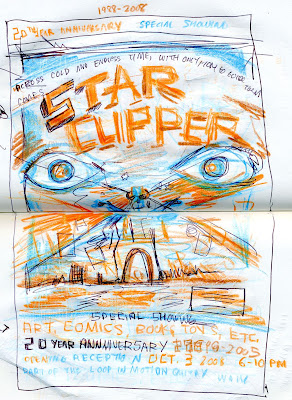 1988-2008
20TH YEAR ANNIVERSARY SPECIAL SHOWING
ACROSS COLD AND ENDLESS TIME, WITH ONLY
COMES
STAR
CLIPPER
SPECIAL SHOWING
ART, COMICS, BOOKS, TOYS, ETC.
20 YEAR ANNNIVERSARY
OPENING RECEPTION OCT. 3 2008 6-10 PM
PART OF THE LOOP IN MOTION